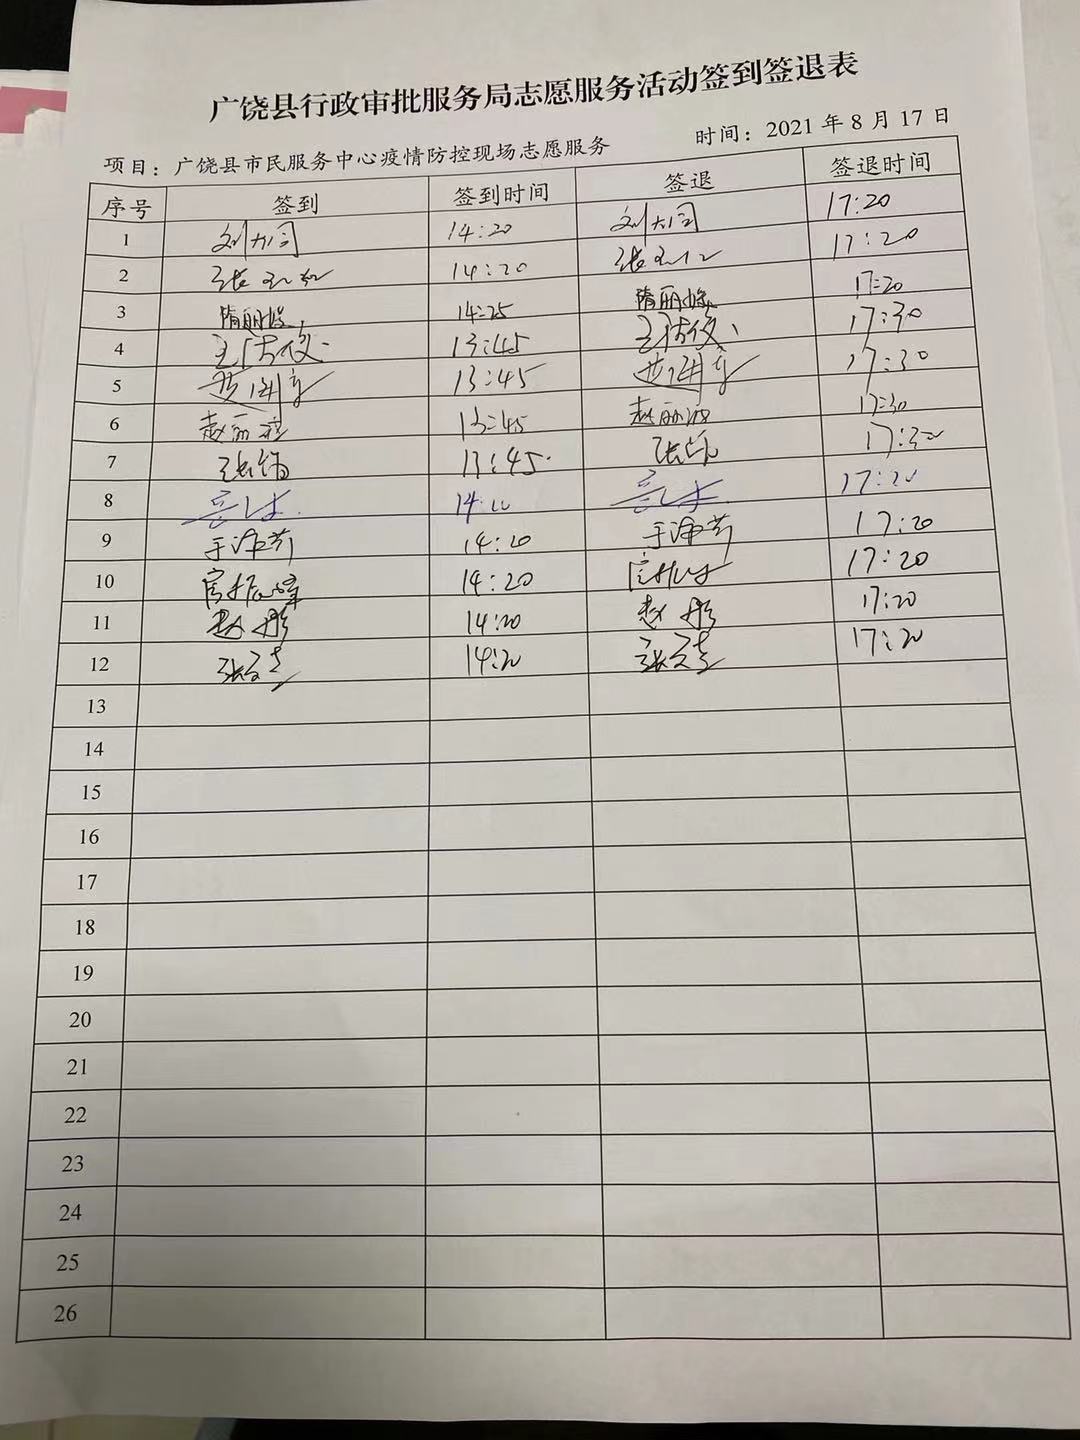 广饶县行政审批服务局志愿服务活动签到签退表
项目：广饶县市民服务中心疫情防控现场志愿服务 时间：2021年8月17日
序号 签到 签到时间 签退 签退时间
1 刘大同 14:20 刘大同 17:20
2 14:20 17:20
3 隋丽 14:25 隋丽 17:20
4 13:45 17:30
5 13:45 17:30
6 赵丽 13:45 赵丽 17:30
7 张 13:45 张 17:30
8 14: 17:20
9 于 14:20 于 17:20
10 14:20 17:20
11 赵彤 14:20 赵彤 17:20
12 张 14:20 张 17:20
13
14
15
16
17
18
19
20
21
22
23
24
25
26